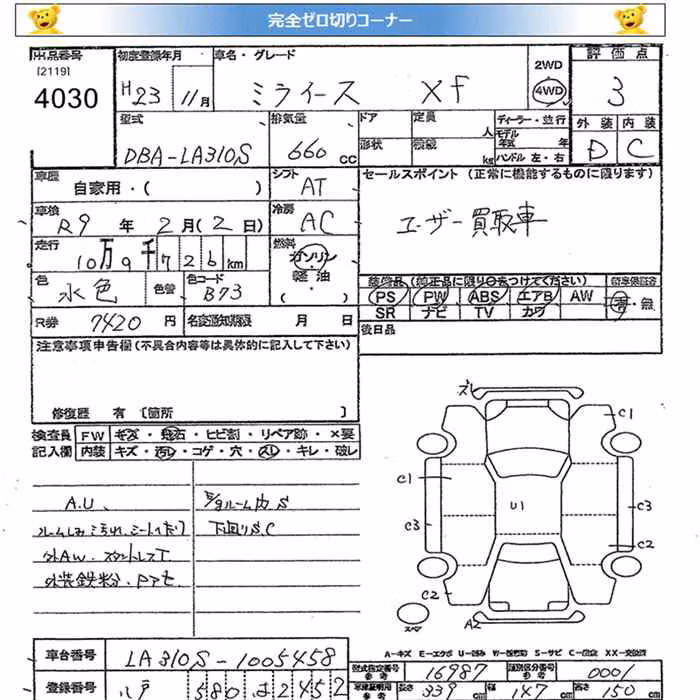 完全ゼロ切りコーナー
出品番号
[2119]
4030
初度登録年月
H23 11月
車名・グレード
ミライース Xf
2WD
4WD
評価点
3
外装 内装
D C
型式
DBA-LA310S
排気量
660 cc
ドア
形状
定員
人
積載
kg
ディーラー・並行
モデル年式 年
ハンドル 左・右
車歴
自家用・( )
シフト
AT
セールスポイント (正常に機能するものに限ります)
ユーザー買取車
車検
R9 年 2月(2日)
冷房
AC
走行
10万9千726km
燃料
ガソリン
軽油
( )
色
水色
色替
色コード
B73
装備品(純正品に限り○をつけてください)
新車保証書
PS PW ABS エアB AW
有・無
SR ナビ TV カワ
R券 7420円
名変通知期限 月 日
後日品
注意事項申告欄(不具合内容等は具体的に記入して下さい)
修復歴 有 [箇所 ]
検査員
記入欄
FW キズ・飛石・ヒビ割・リペア跡・×要
内装 キズ・汚レ・コゲ・穴・スレ・キレ・破レ
A.U.
E/gルーム内 S
下回りS.C
外AW.
外装鉄粉.
ズレ
C1
C1
U1
C3
C3
C2
C2
A2
A-キズ E-エクボ U-凹み W-補修跡 S-サビ C-腐食 XX-交換済
車台番号 LA310S-1005458
型式指定番号 参考 16987
類別区分番号 参考 0001
登録番号 八戸 580 は 2452
長さ 339 cm
幅 147 cm
高さ 150 cm